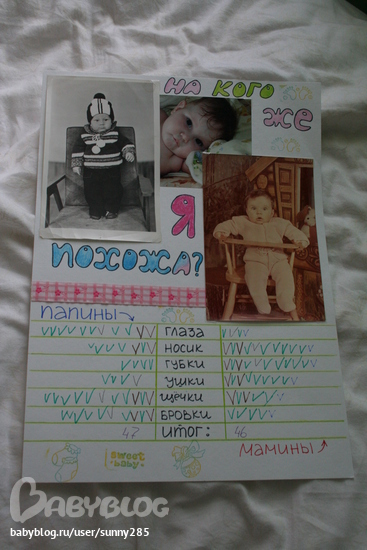 НА КОГО
ЖЕ
Я
ПОХОЖА?
ПАПИНЫ
ГЛАЗА
НОСИК
ГУБКИ
УШКИ
ЩЕЧКИ
БРОВКИ
47 ИТОГ: 46
МАМИНЫ
Sweet
baby
BABYBLOG
babyblog.ru/user/sunny285